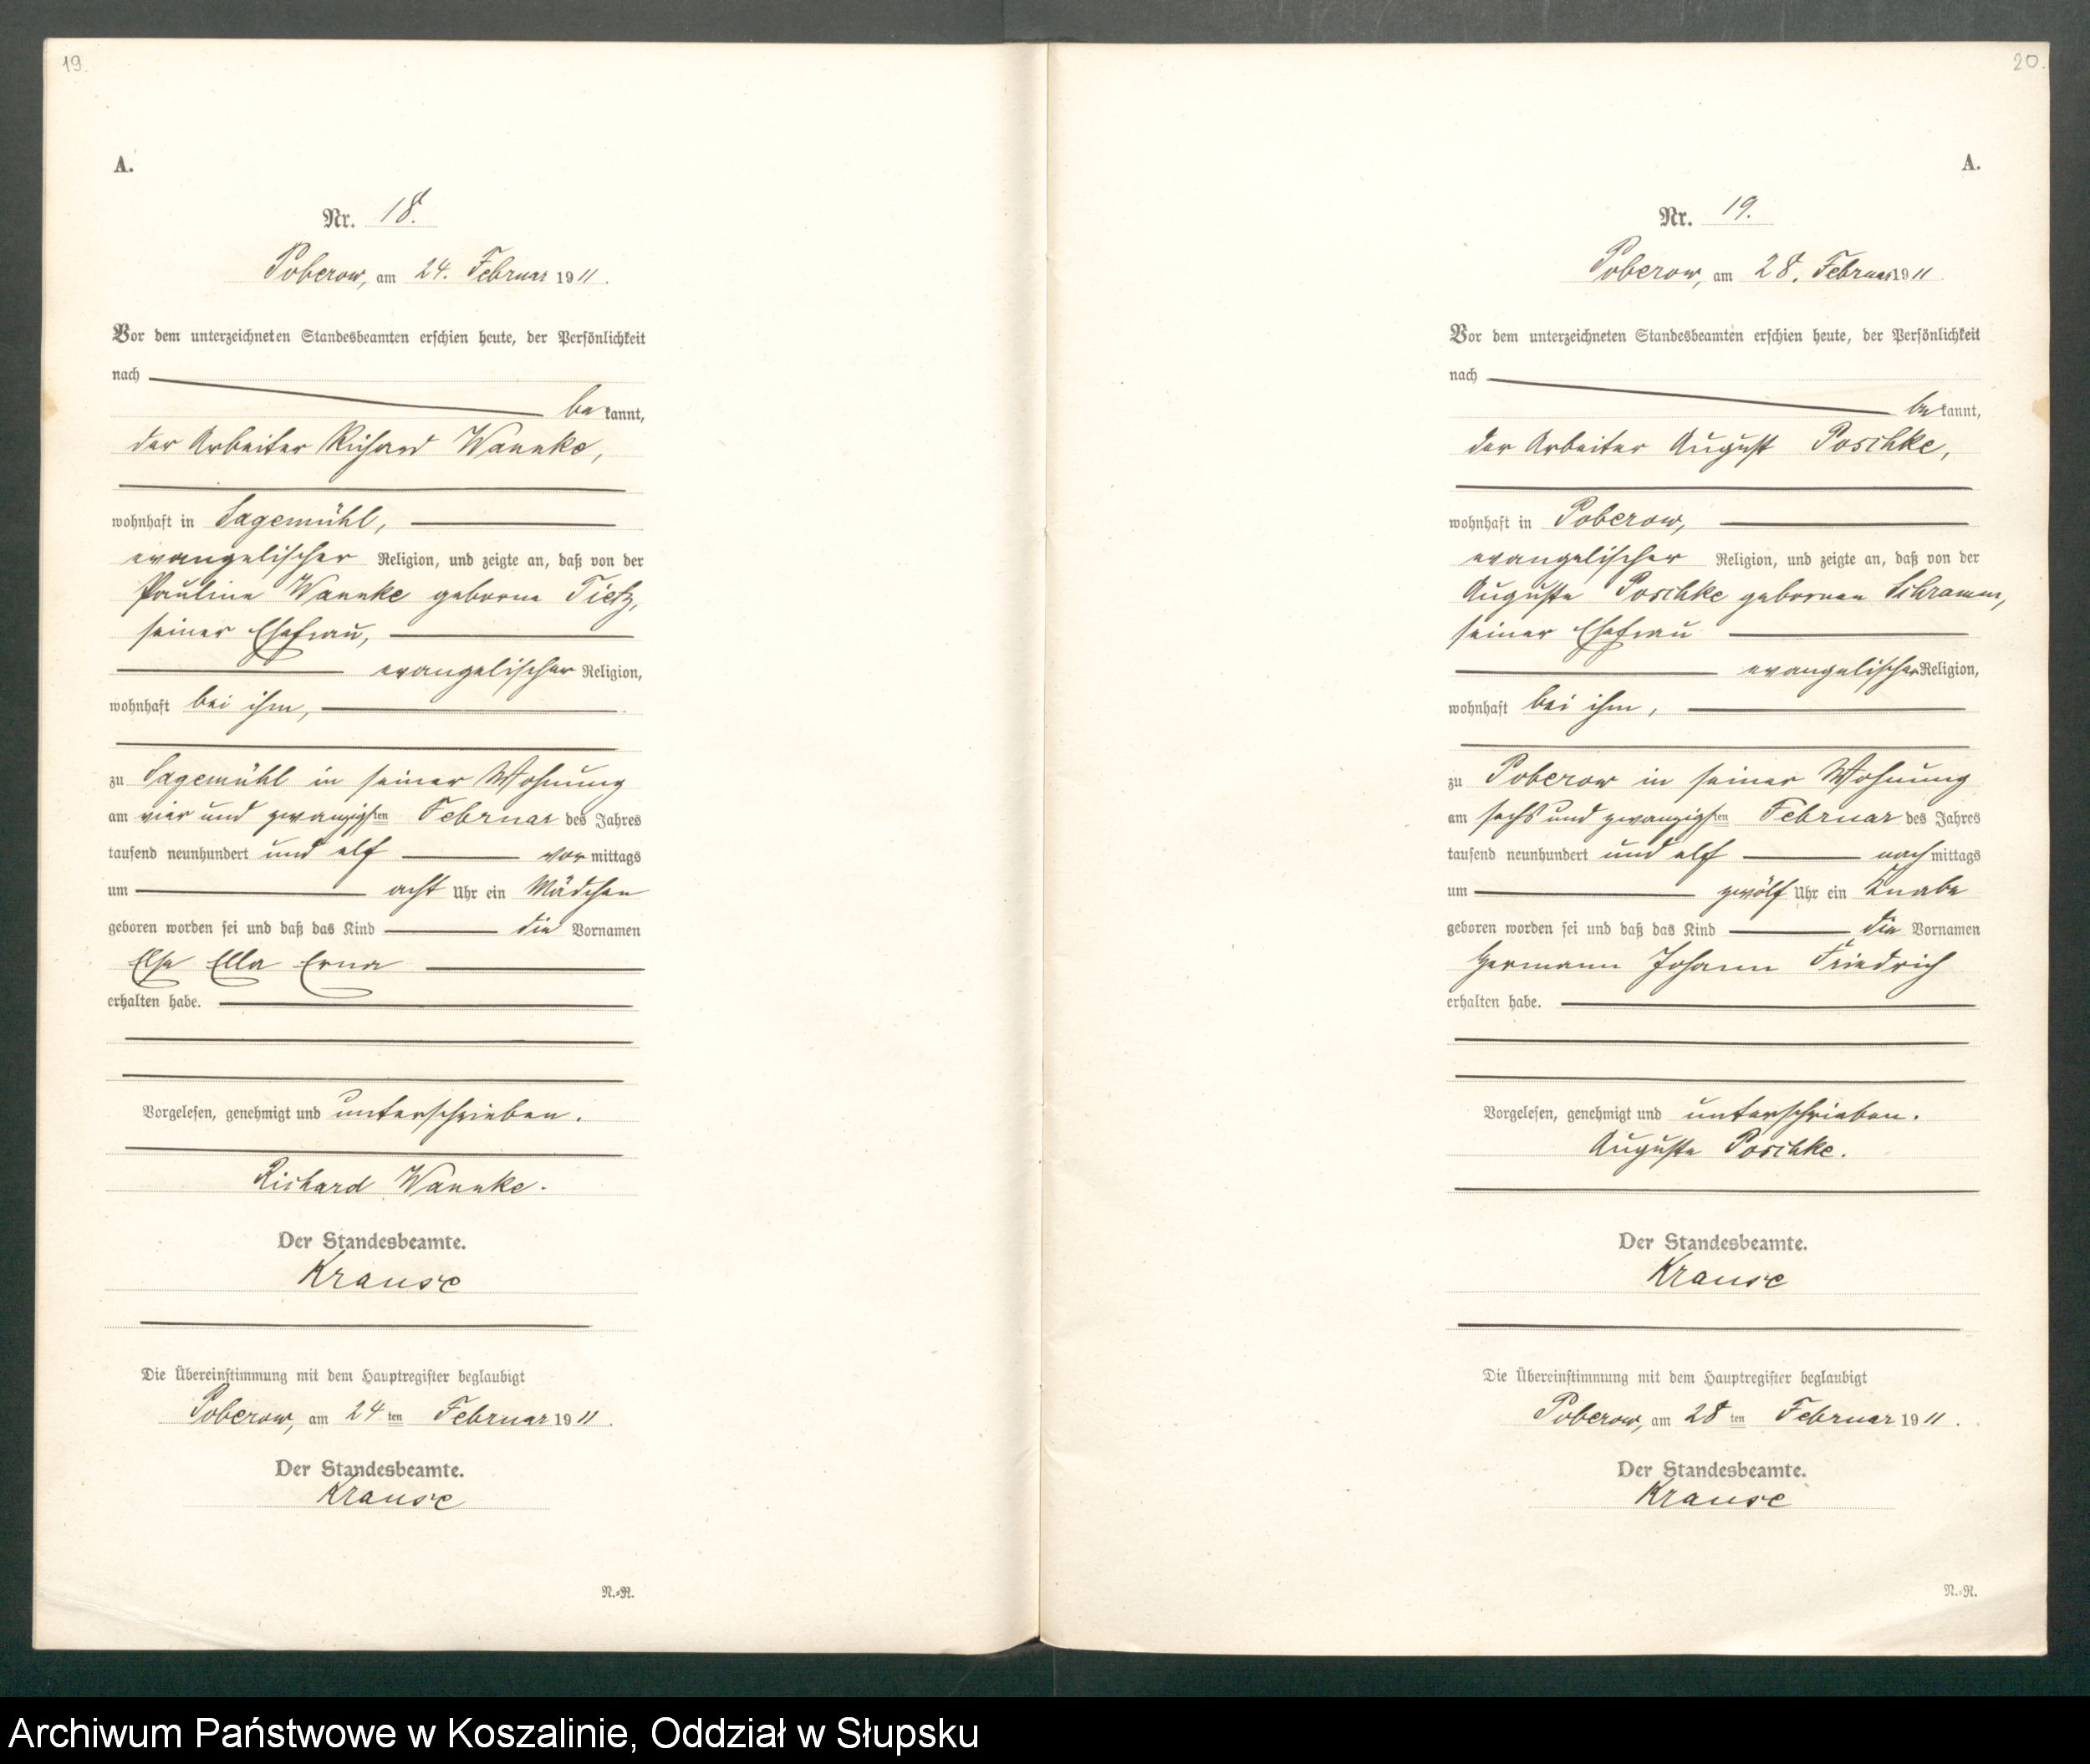 19.
A.
Nr. 18.
Poberow, am 24. Februar 1911.
Vor dem unterzeichneten Standesbeamten erschien heute, der Persönlichkeit
nach
bekannt,
der Arbeiter Richard Wannke,
wohnhaft in Sagemühl,
evangelischer Religion, und zeigte an, daß von der
Pauline Wannke geborne Tietz,
seiner Ehefrau,
evangelischer Religion,
wohnhaft bei ihm,
zu Sagemühl in seiner Wohnung
am vier und zwanzigsten Februar des Jahres
tausend neunhundert und elf vormittags
um acht Uhr ein Mädchen
geboren worden sei und daß das Kind die Vornamen
Else Ella Erna
erhalten habe.
Vorgelesen, genehmigt und unterschrieben.
Richard Wannke.
Der Standesbeamte.
Krause
Die Übereinstimmung mit dem Hauptregister beglaubigt
Poberow, am 24ten Februar 1911.
Der Standesbeamte.
Krause
N.=R.
20.
A.
Nr. 19.
Poberow, am 28. Februar 1911.
Vor dem unterzeichneten Standesbeamten erschien heute, der Persönlichkeit
nach
bekannt,
der Arbeiter August Poschke,
wohnhaft in Poberow,
evangelischer Religion, und zeigte an, daß von der
Auguste Poschke gebornen Schramm,
seiner Ehefrau
evangelischer Religion,
wohnhaft bei ihm,
zu Poberow in seiner Wohnung
am sechs und zwanzigsten Februar des Jahres
tausend neunhundert und elf nachmittags
um zwölf Uhr ein Knabe
geboren worden sei und daß das Kind die Vornamen
Hermann Johann Friedrich
erhalten habe.
Vorgelesen, genehmigt und unterschrieben.
Auguste Poschke.
Der Standesbeamte.
Krause
Die Übereinstimmung mit dem Hauptregister beglaubigt
Poberow, am 28ten Februar 1911.
Der Standesbeamte.
Krause
N.=R.
Archiwum Państwowe w Koszalinie, Oddział w Słupsku